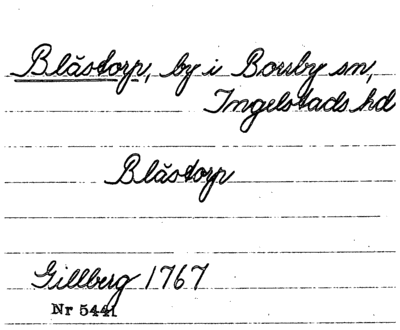 Blåstorp, by i Borrby sn,
Ingelstads hd
Blåstorp
Gillberg 1767
Nr 5441